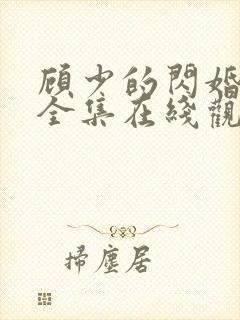 顾少的閃婚
全集在綫觀
掃塵居